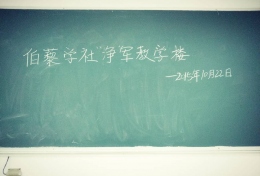 伯藜学社净军教学楼
—2015年10月22日